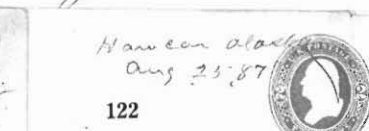 Howcan alaska
Aug 25 87
122